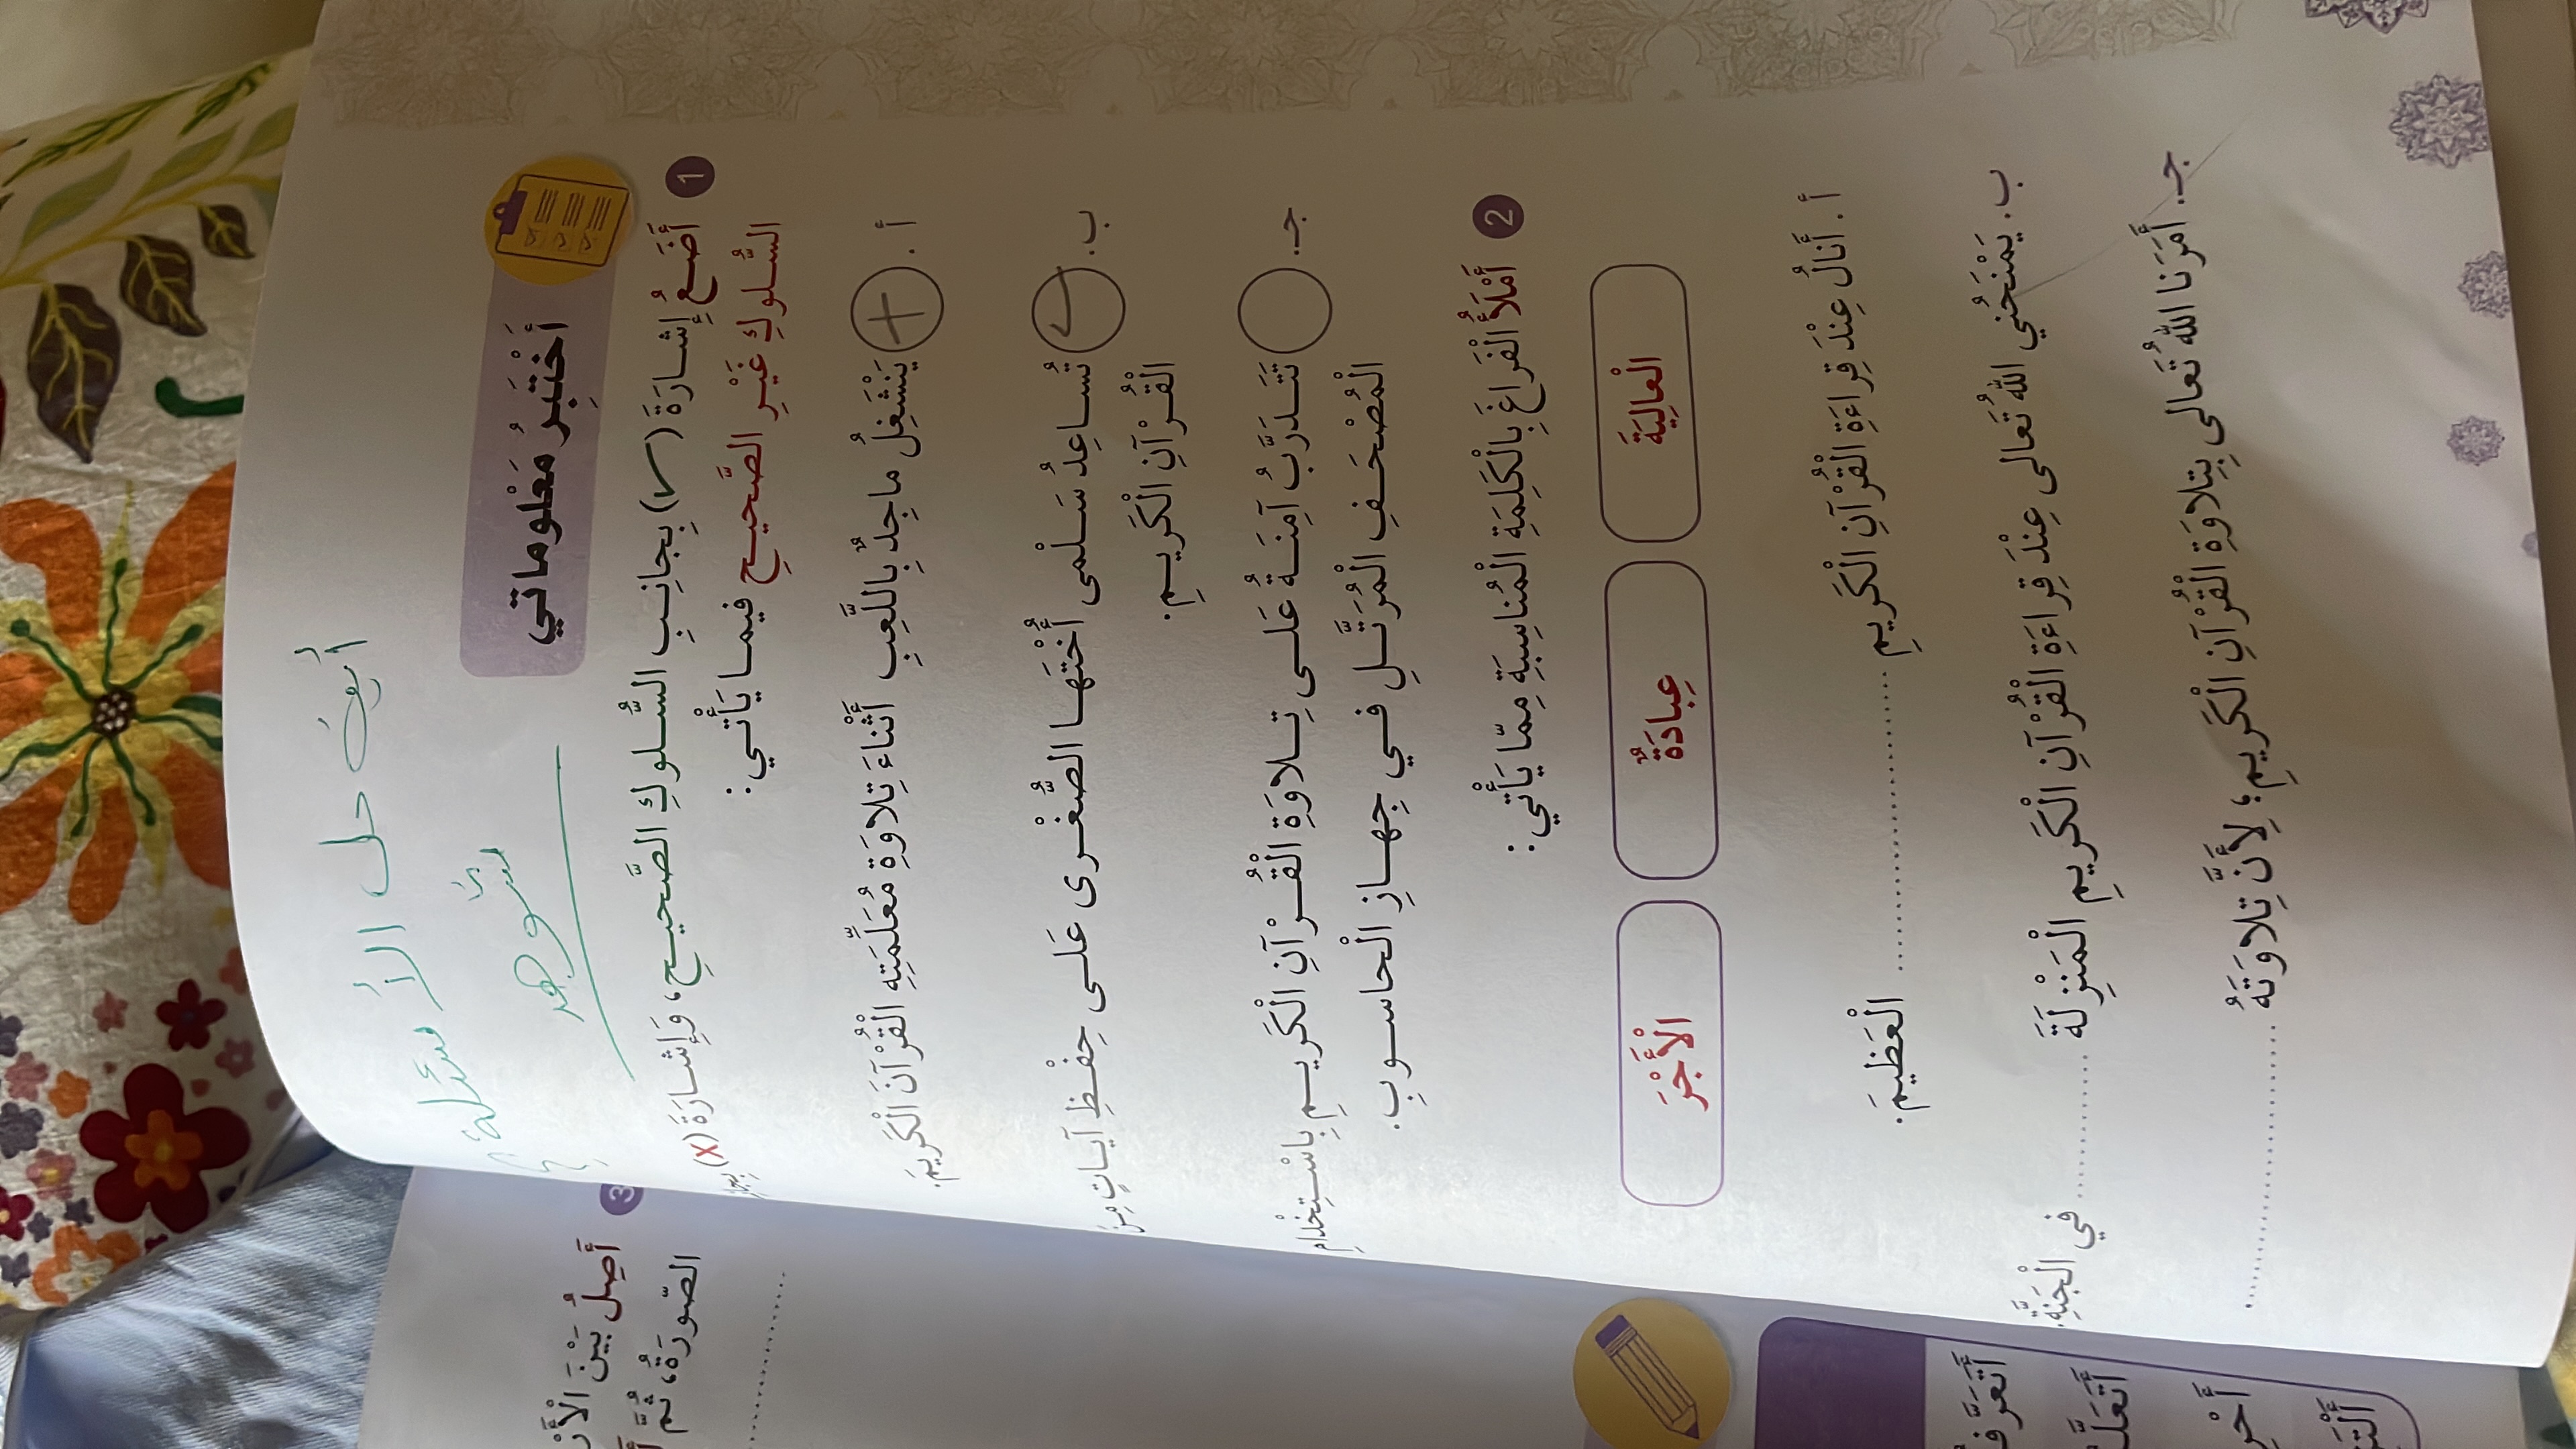 حل الأسئلة
أَخْتَبِرُ مَعْلوماتي
1 أَضَعُ إِشارَةَ (✓) بِجانِبِ السُّلوكِ الصَّحيحِ، وَإِشارَةَ (X)
السُّلوكِ غَيْرِ الصَّحيحِ فيما يَأْتي:
أ. يَنْشَغِلُ ماجِدٌ بِاللَّعِبِ أَثْناءَ تِلاوَةِ مُعَلِّمَتِهِ الْقُرْآنَ الْكَريمَ.
ب. ✓ تُساعِدُ سَلْمى أُخْتَهَا الصُّغْرى عَلى حِفْظِ آياتٍ مِنَ
الْقُرْآنِ الْكَريمِ.
جـ. تَتَدَرَّبُ آمِنَةُ عَلى تِلاوَةِ الْقُرْآنِ الْكَريمِ بِاسْتِخْدامِ
الْمُصْحَفِ الْمُرَتَّلِ في جِهازِ الْحاسوبِ.
2 أَمْلَأُ الْفَراغَ بِالْكَلِمَةِ الْمُناسِبَةِ مِمّا يَأْتي:
الْعالِيَةَ عِبادَةٌ الْأَجْرَ
أ. أَنالُ عِنْدَ قِراءَةِ الْقُرْآنِ الْكَريمِ .................... الْعَظيمَ.
ب. يَمْنَحُني اللّٰهُ تَعالى عِنْدَ قِراءَةِ الْقُرْآنِ الْكَريمِ الْمَنْزِلَةَ ............ في الْجَنَّةِ.
جـ. أَمَرَنا اللّٰهُ تَعالى بِتِلاوَةِ الْقُرْآنِ الْكَريمِ؛ لِأَنَّ تِلاوَتَهُ ....................
3 أَصِلُ بَيْنَ
الصّورَةُ، ثُمَّ